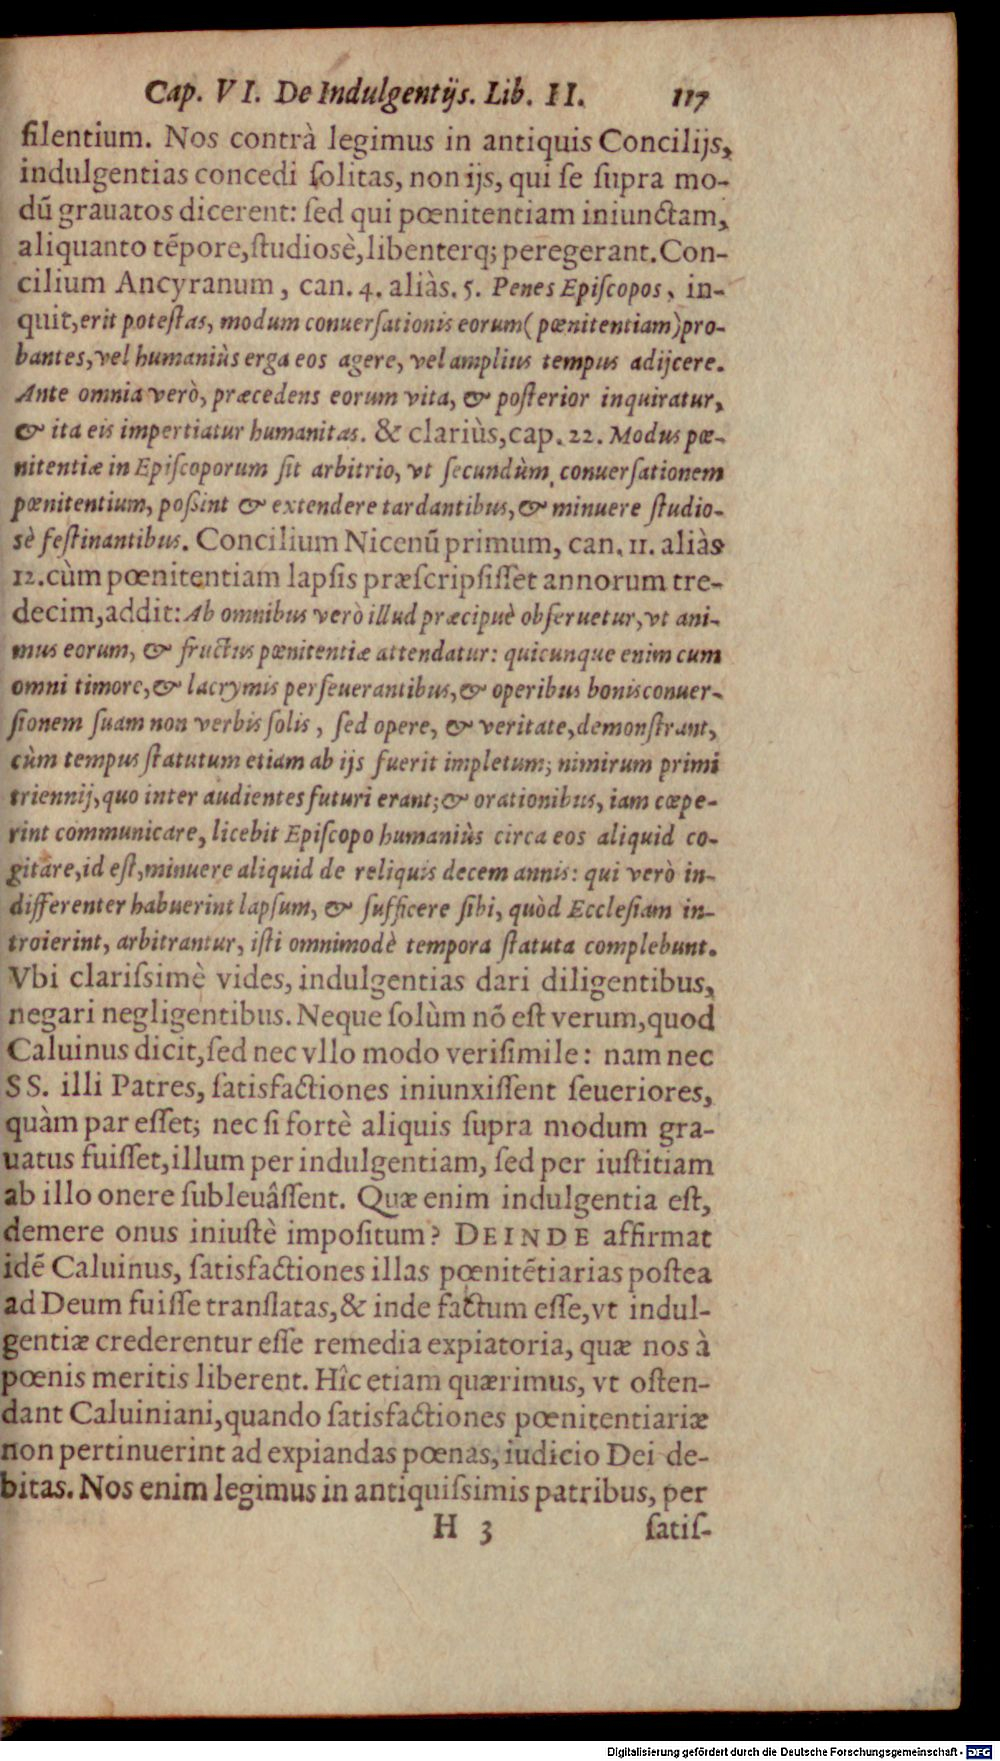 Cap. VI. De Indulgentijs. Lib. II. 117
ſilentium. Nos contrà legimus in antiquis Concilijs,
indulgentias concedi ſolitas, non ijs, qui ſe ſupra mo-
dũ grauatos dicerent: ſed qui pœnitentiam iniunctam,
aliquanto tẽpore, ſtudiosè, libenterq; peregerant. Con-
cilium Ancyranum, can. 4. aliàs. 5. Penes Epiſcopos, in-
quit, erit poteſtas, modum conuerſationis eorum (pœnitentiam) pro-
bantes, vel humaniùs erga eos agere, vel amplius tempus adijcere.
Ante omnia verò, præcedens eorum vita, & poſterior inquiratur,
& ita eis impertiatur humanitas. & clariùs, cap. 22. Modus pœ-
nitentiæ in Epiſcoporum ſit arbitrio, vt ſecundùm conuerſationem
pœnitentium, poßint & extendere tardantibus, & minuere ſtudio-
sè feſtinantibus. Concilium Nicenũ primum, can. 11. aliàs
12. cùm pœnitentiam lapſis præſcripſiſſet annorum tre-
decim, addit: Ab omnibus verò illud præcipuè obſeruetur, vt ani-
mus eorum, & fructus pœnitentiæ attendatur: quicunque enim cum
omni timore, & lacrymis perſeuerantibus, & operibus bonis conuer-
ſionem ſuam non verbis ſolis, ſed opere, & veritate, demonſtrant,
cùm tempus ſtatutum etiam ab ijs fuerit impletum; nimirum primi
triennij, quo inter audientes futuri erant; & orationibus, iam cœpe-
rint communicare, licebit Epiſcopo humaniùs circa eos aliquid co-
gitare, id eſt, minuere aliquid de reliquis decem annis: qui verò in-
differenter habuerint lapſum, & ſufficere ſibi, quòd Eccleſiam in-
troierint, arbitrantur, iſti omnimodè tempora ſtatuta complebunt.
Vbi clariſsimè vides, indulgentias dari diligentibus,
negari negligentibus. Neque ſolùm nõ eſt verum, quod
Caluinus dicit, ſed nec vllo modo veriſimile: nam nec
SS. illi Patres, ſatisfactiones iniunxiſſent ſeueriores,
quàm par eſſet; nec ſi fortè aliquis ſupra modum gra-
uatus fuiſſet, illum per indulgentiam, ſed per iuſtitiam
ab illo onere ſubleuâſſent. Quæ enim indulgentia eſt,
demere onus iniuſtè impoſitum? DEINDE affirmat
idẽ Caluinus, ſatisfactiones illas pœnitẽtiarias poſtea
ad Deum fuiſſe translatas, & inde factum eſſe, vt indul-
gentiæ crederentur eſſe remedia expiatoria, quæ nos à
pœnis meritis liberent. Hîc etiam quærimus, vt oſten-
dant Caluiniani, quando ſatisfactiones pœnitentiariæ
non pertinuerint ad expiandas pœnas, iudicio Dei de-
bitas. Nos enim legimus in antiquiſsimis patribus, per
H 3 ſatiſ-
Digitalisierung gefördert durch die Deutsche Forschungsgemeinschaft - DFG